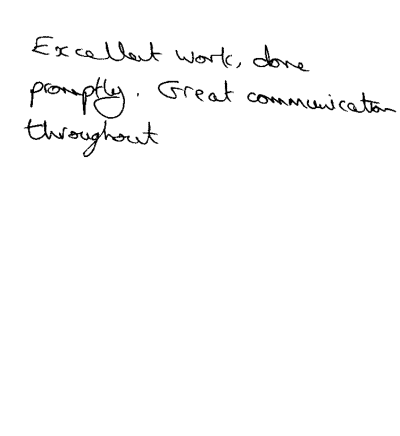 Excellent work, done
promptly. Great communication
throughout